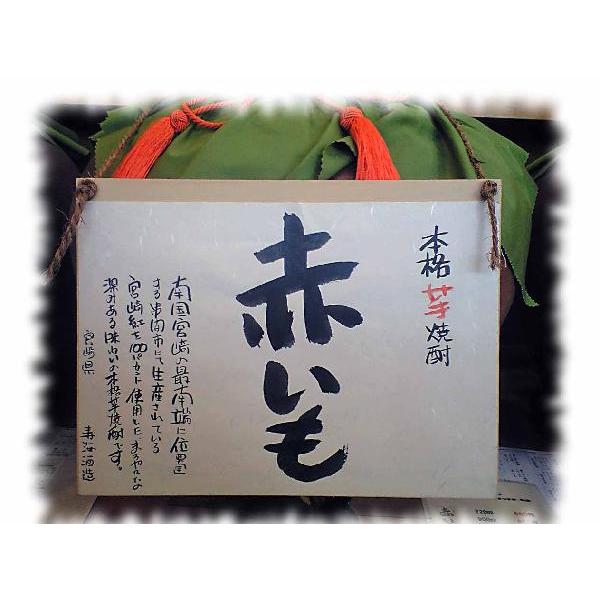 本格芋焼酎
赤いも
南国宮崎の最南端に位置
する串間市にて生産されている
宮崎紅を100パーセント使用した、まろやかな
深みのある味わいの本格芋焼酎です。
宮崎県 寿海酒造
720ml
900ml